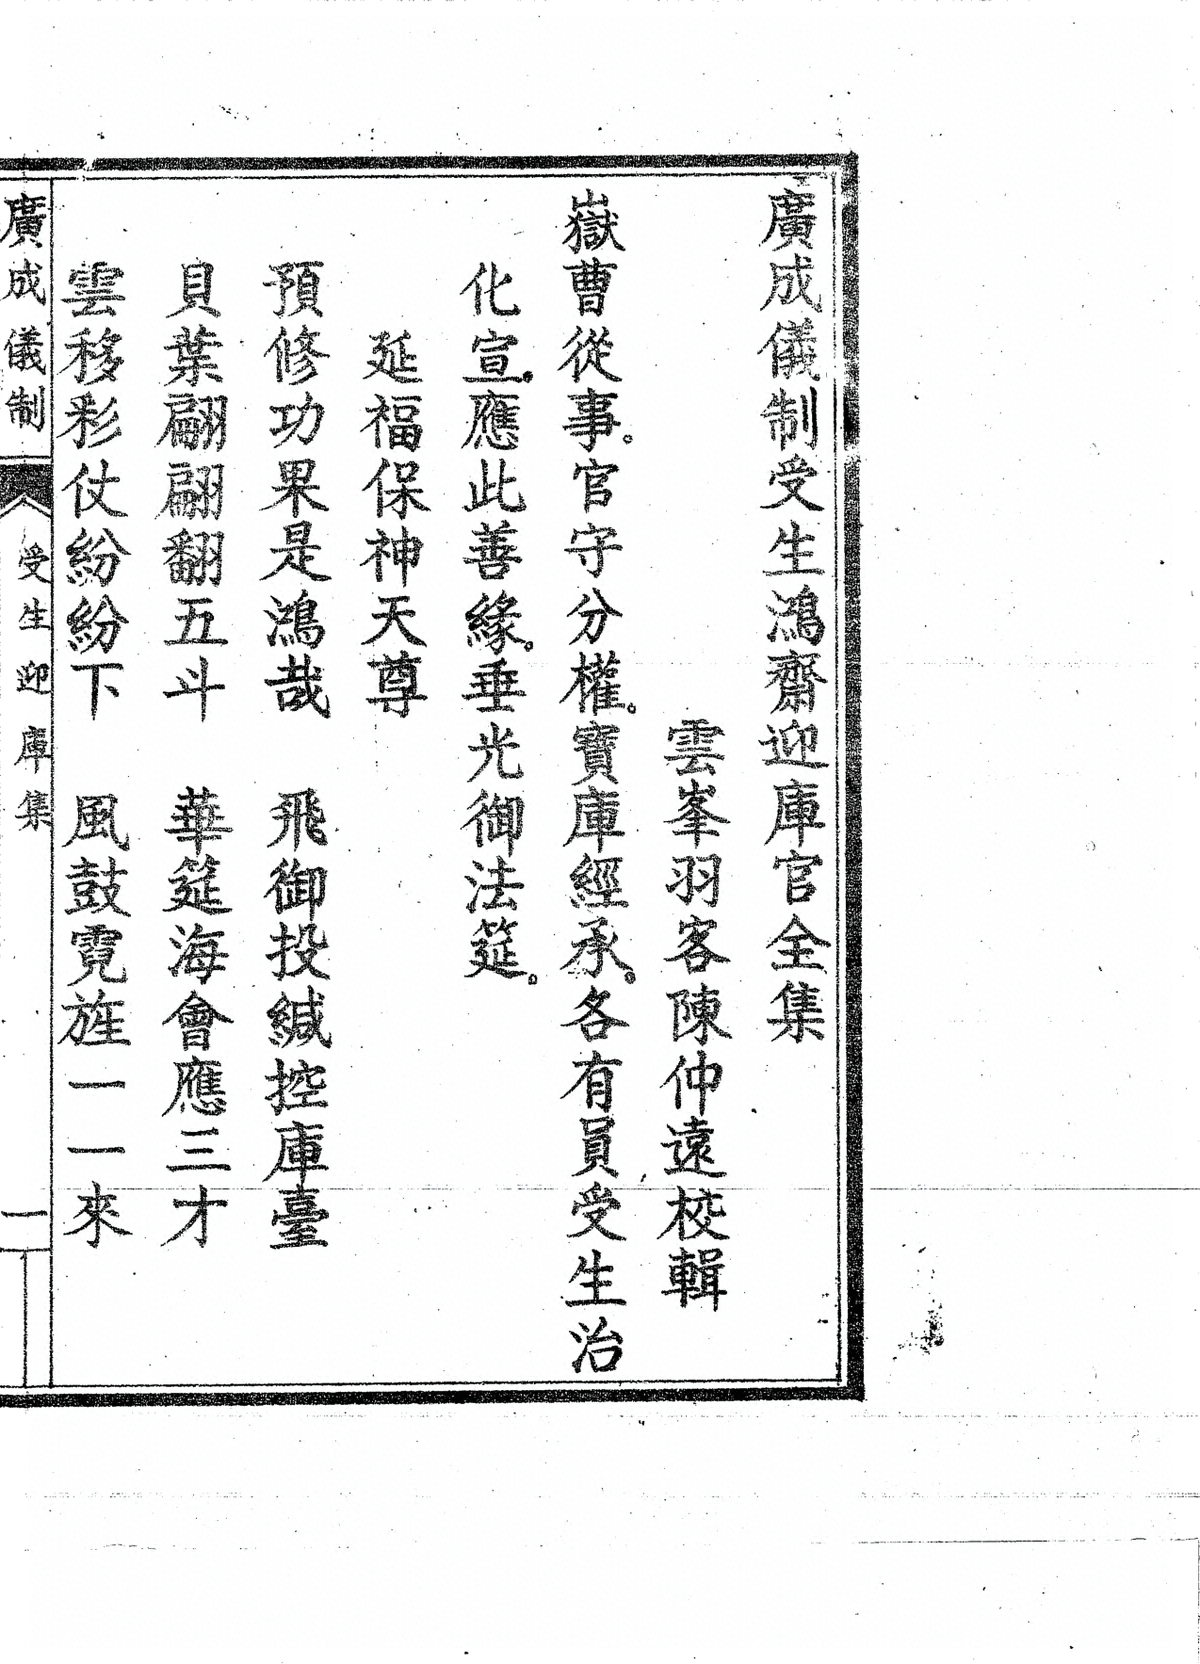 廣成儀制受生鴻齋迎庫官全集
雲峯羽客陳仲遠校輯
嶽曹從事。官守分權。寶庫經承。各有員受生治
化宣。應此善緣。垂光御法筵。
延福保神天尊
預修功果是鴻哉　飛御投緘控庫臺
貝葉翩翩翻五斗　華筵海會應三才
雲移彩仗紛紛下　風鼓霓旌一一來
廣成儀制　受生迎庫集　一